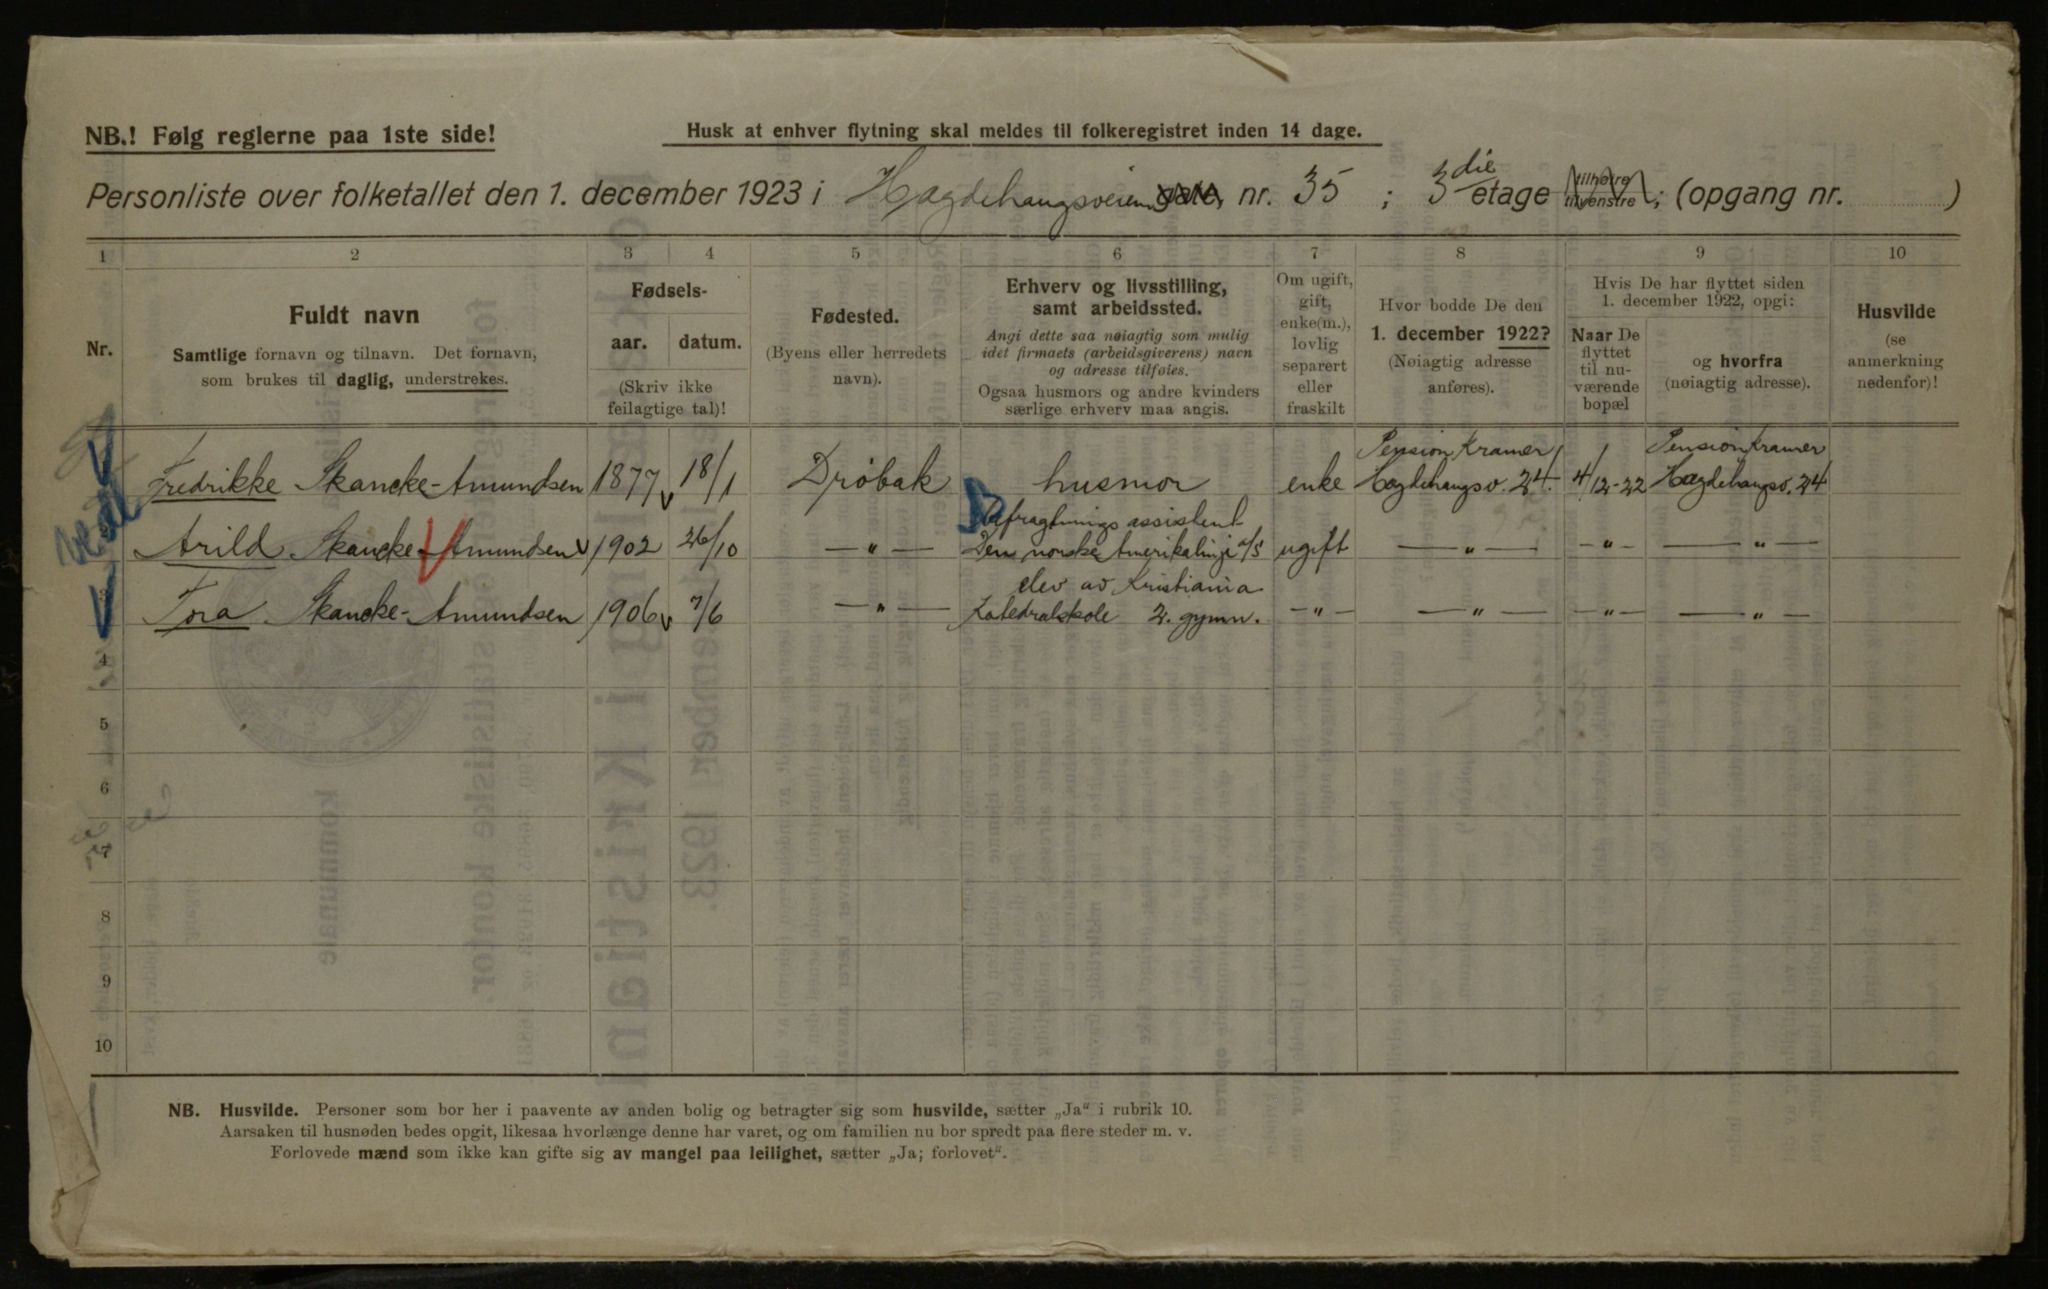 NB.! Følg reglerne paa 1ste side!
Husk at enhver flytning skal meldes til folkeregistret inden 14 dage.
Personliste over folketallet den 1. december 1923 i Hagdehaugsveien gate, nr. 35 ; 3die etage tilhøire tilvenstre ; (opgang nr. )
1 2 3 4 5 6 7 8 9 10
Nr.
Fuldt navn
Samtlige fornavn og tilnavn. Det fornavn,
som brukes til daglig, understrekes.
Fødsels-
aar. datum.
(Skriv ikke
feilagtige tal)!
Fødested.
(Byens eller herredets
navn).
Erhverv og livsstilling,
samt arbeidssted.
Angi dette saa nøiagtig som mulig
idet firmaets (arbeidsgiverens) navn
og adresse tilføies.
Ogsaa husmors og andre kvinders
særlige erhverv maa angis.
Om ugift,
gift,
enke(m.),
lovlig
separert
eller
fraskilt
Hvor bodde De den
1. december 1922?
(Nøiagtig adresse
anføres).
Hvis De har flyttet siden
1. december 1922, opgi:
Naar De
flyttet
til nu-
værende
bopæl
og hvorfra
(nøiagtig adresse).
Husvilde
(se
anmerkning
nedenfor)!
Pension Kramer Pension Kramer
Fredrikke Skancke-Amundsen 1877 18/1 Drøbak husmor enke Hagdehaugsv. 24. 4/12-22 Hagdehaugsv. 24
Befragtnings assistent
Arild Skancke-Amundsen 1902 26/10 — „ — Den norske Amerikalinje a/s ugift — „ — — „ — — „ —
elev av Kristiania
3 Tora Skancke-Amundsen 1906 7/6 — „ — Katedralskole 2. gymn. — „ — — „ — — „ — — „ —
4
5
6
7
8
9
10
NB. Husvilde. Personer som bor her i paavente av anden bolig og betragter sig som husvilde, sætter „Ja“ i rubrik 10.
Aarsaken til husnøden bedes opgit, likesaa hvorlænge denne har varet, og om familien nu bor spredt paa flere steder m. v.
Forlovede mænd som ikke kan gifte sig av mangel paa leilighet, sætter „Ja; forlovet“.